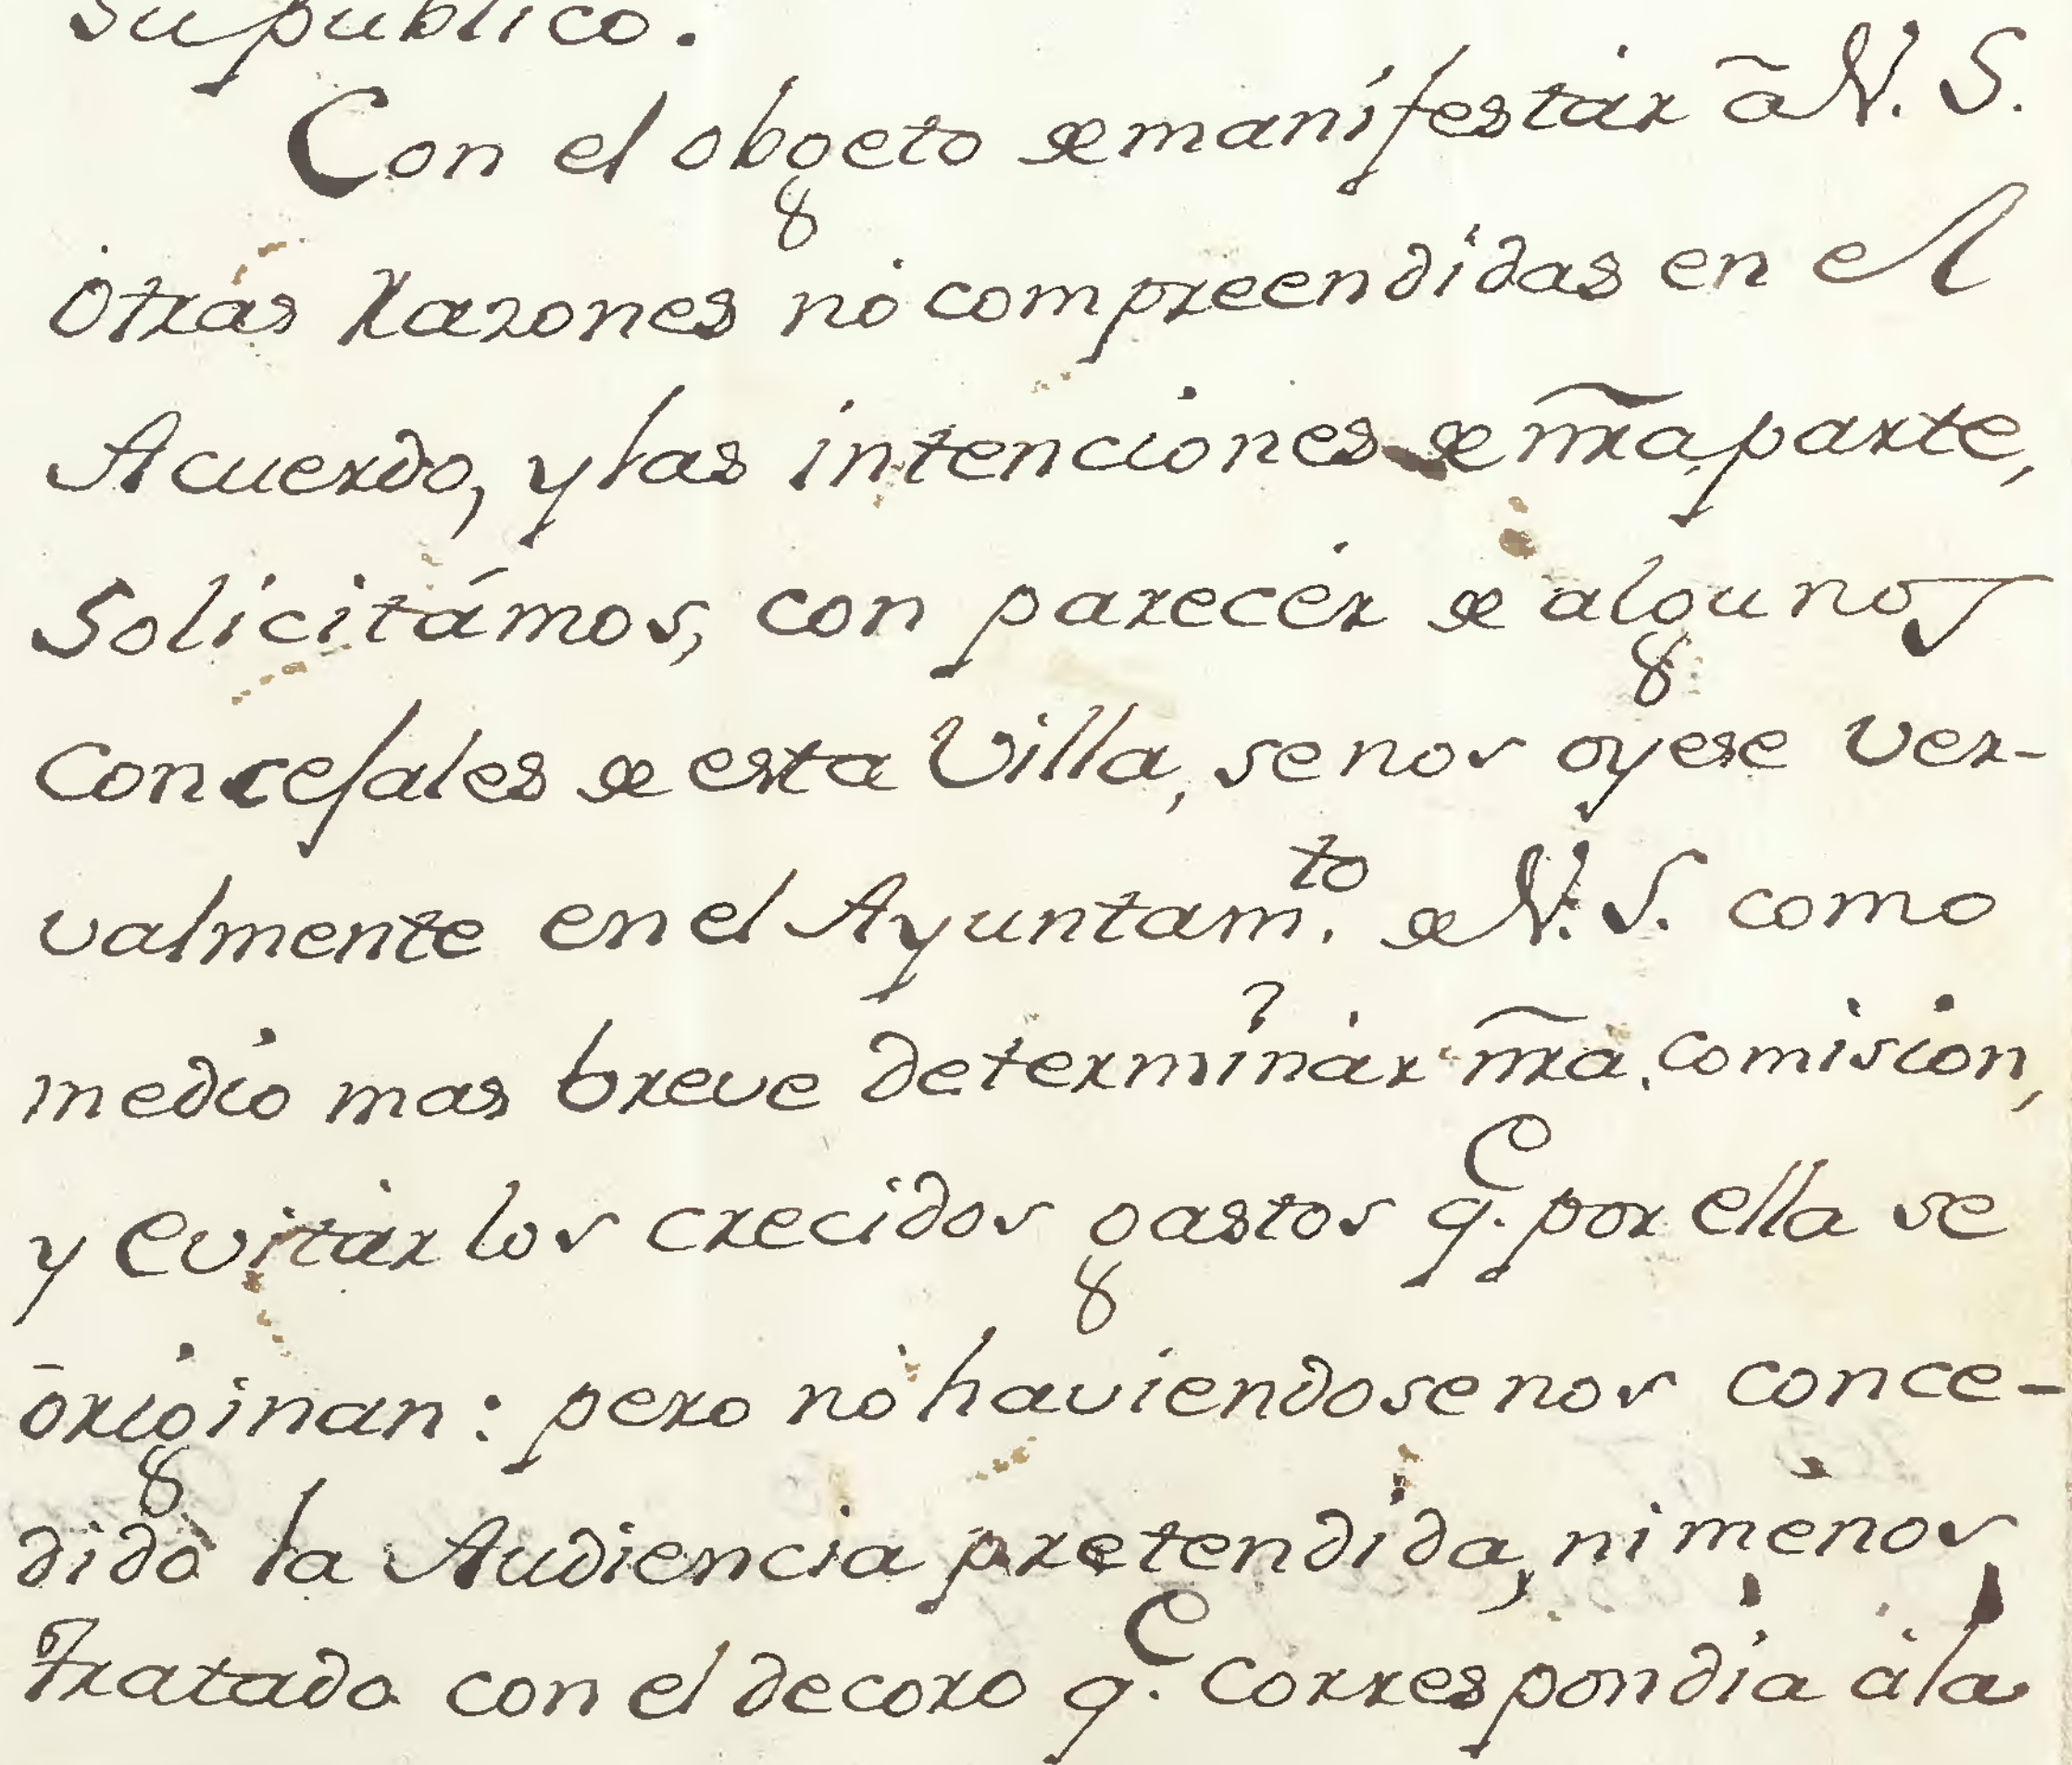 su publico.
Con el obgeto de manifestar à V. S.
otras razones no compreendidas en el
Acuerdo, y las intenciones de ñra parte,
Solicitámos, con parecer de algunos
Concejales de esta Villa, se nos oyese ver-
valmente en el Ayuntam.to de V. S. como
medio mas breve determinar ñra comision,
y evitar los crecidos gastos q.e por ella se
originan: pero no haviendosenos conce-
dido la Audiencia pretendida, ni menos
tratado con el decoro q.e correspondia á la